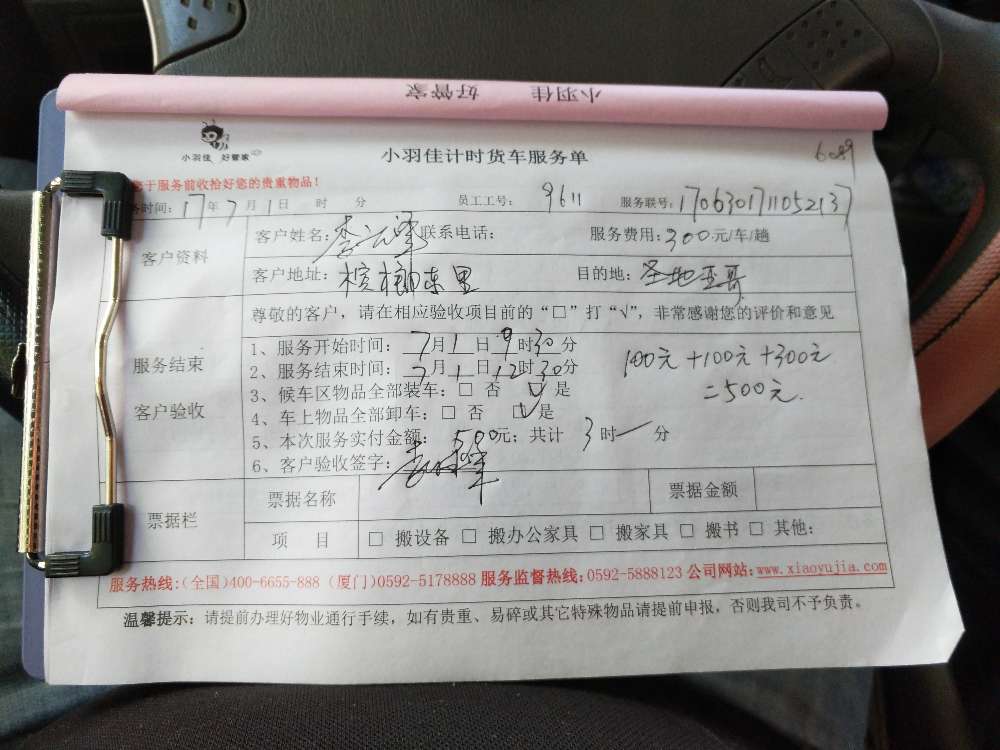 小羽佳 好管家
小羽佳 好管家
小羽佳计时货车服务单
6089
于服务前收拾好您的贵重物品!
务时间:17年7月1日 时 分 员工工号: 9611 服务联号:1706301711052137
客户资料
客户姓名:李 联系电话: 服务费用:300元/车/趟
客户地址:槟榔东里 目的地:圣地亚哥
服务结束
客户验收
尊敬的客户,请在相应验收项目前的“□”打“√”,非常感谢您的评价和意见
1、服务开始时间:7月1日9时30分
2、服务结束时间:7月1日12时30分
3、候车区物品全部装车:□ 否 ☑ 是
4、车上物品全部卸车:□ 否 ☑ 是
5、本次服务实付金额:500元;共计 3时/分
6、客户验收签字:
100元+100元+300元
=500元.
票据栏
票据名称 票据金额
项 目 □ 搬设备 □ 搬办公家具 □ 搬家具 □ 搬书 □ 其他:
服务热线:(全国)400-6655-888 (厦门)0592-5178888 服务监督热线:0592-5888123 公司网站:www.xiaoyujia.com
温馨提示:请提前办理好物业通行手续,如有贵重、易碎或其它特殊物品请提前申报,否则我司不予负责。